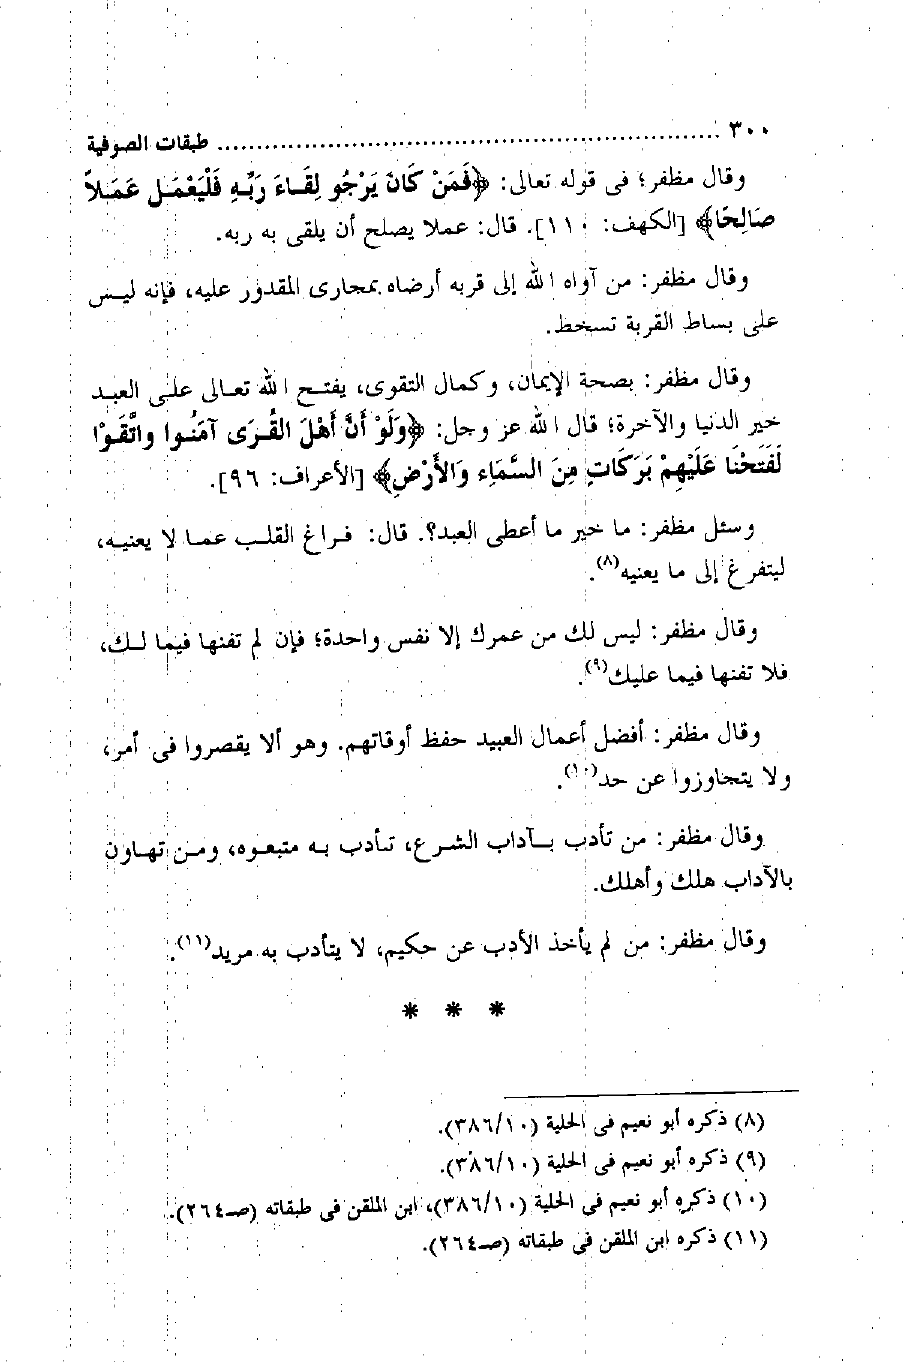 ٣٠٠ ........................................................ طبقات الصوفية
وقال مظفر؛ فى قوله تعالى: ﴿فَمَنْ كَانَ يَرْجُو لِقَاءَ رَبِّهِ فَلْيَعْمَل عَمَلاً
صَالِحًا﴾ [الكهف: ١١٠]. قال: عملا يصلح أن يلقى به ربه.
وقال مظفر: من آواه الله إلى قربه أرضاه بمجارى المقدور عليه، فإنه ليس
على بساط القربة تسخط.
وقال مظفر: بصحة الإيمان، وكمال التقوى، يفتح الله تعالى على العبد
خير الدنيا والآخرة؛ قال الله عز وجل: ﴿وَلَوْ أَنَّ أَهْلَ القُرَى آمَنُوا واتَّقَوْا
لَفَتَحْنَا عَلَيْهِمْ بَرَكَاتٍ مِنَ السَّمَاء وَالأَرْضِ﴾ [الأعراف: ٩٦].
وسئل مظفر: ما خير ما أعطى العبد؟. قال: فراغ القلب عما لا يعنيه،
ليتفرغ إلى ما يعنيه(٨).
وقال مظفر: ليس لك من عمرك إلا نفس واحدة؛ فإن لم تفنها فيما لك،
فلا تفنها فيما عليك(٩).
وقال مظفر: أفضل أعمال العبيد حفظ أوقاتهم. وهو ألا يقصروا فى أمر،
ولا يتجاوزوا عن حد(١٠).
وقال مظفر: من تأدب بآداب الشرع، تأدب به متبعوه، ومن تهاون
بالآداب هلك وأهلك.
وقال مظفر: من لم يأخذ الأدب عن حكيم، لا يتأدب به مريد(١١).
* * *
(٨) ذكره أبو نعيم فى الحلية (٣٨٦/١٠).
(٩) ذكره أبو نعيم فى الحلية (٣٨٦/١٠).
(١٠) ذكره أبو نعيم فى الحلية (٣٨٦/١٠)، ابن الملقن فى طبقاته (صـ٢٦٤).
(١١) ذكره ابن الملقن فى طبقاته (صـ٢٦٤).